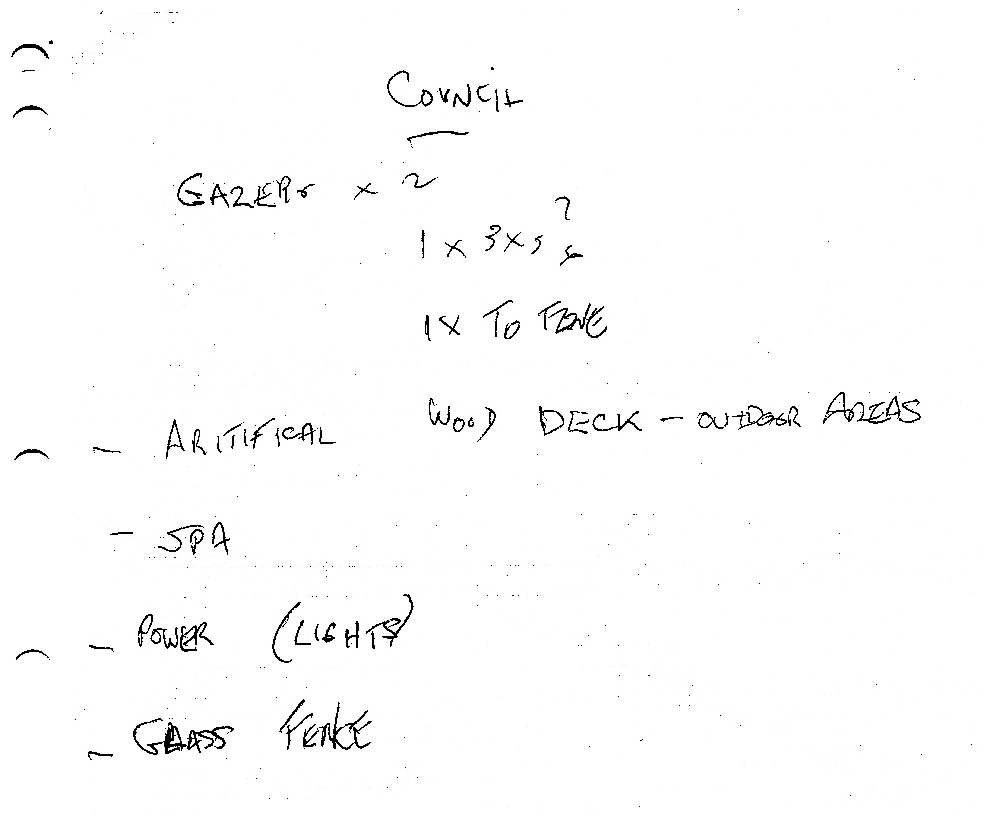 COUNCIL
GAZEBO x 2
?
1 x 3 x 5
1 x TO FENCE
- ARITIFICAL WOOD DECK - OUTDOOR AREAS
- SPA
- POWER (LIGHTS)
- GLASS FENCE